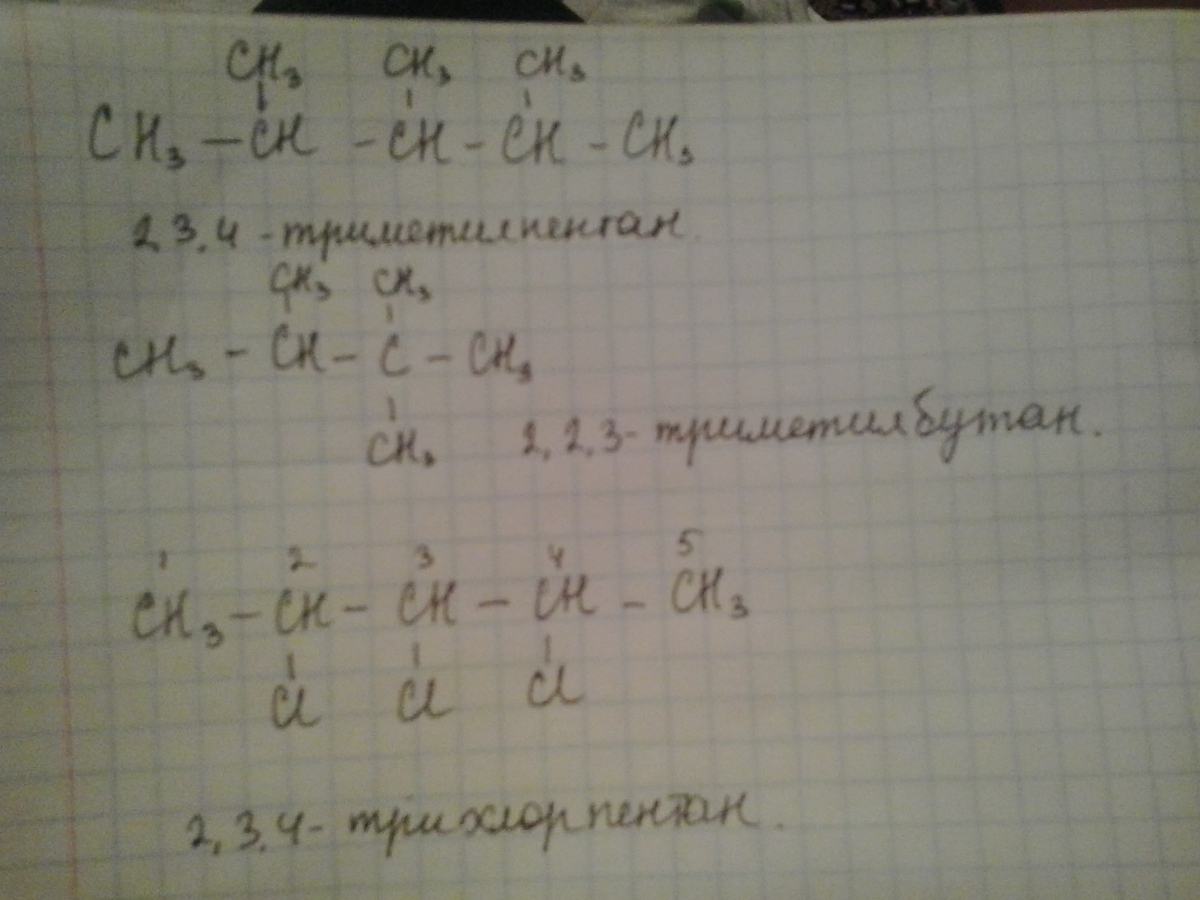 CH₃ CH₃ CH₃
CH₃ – CH – CH – CH – CH₃
2 3.4 - триметилпентан.
CH₃ CH₃
CH₃ – CH – C – CH₃
CH₃ 2,2,3- триметилбутан.
1 2 3 4 5
CH₃ – CH – CH – CH – CH₃
Cl Cl Cl
2,3.4- трихлорпентан.